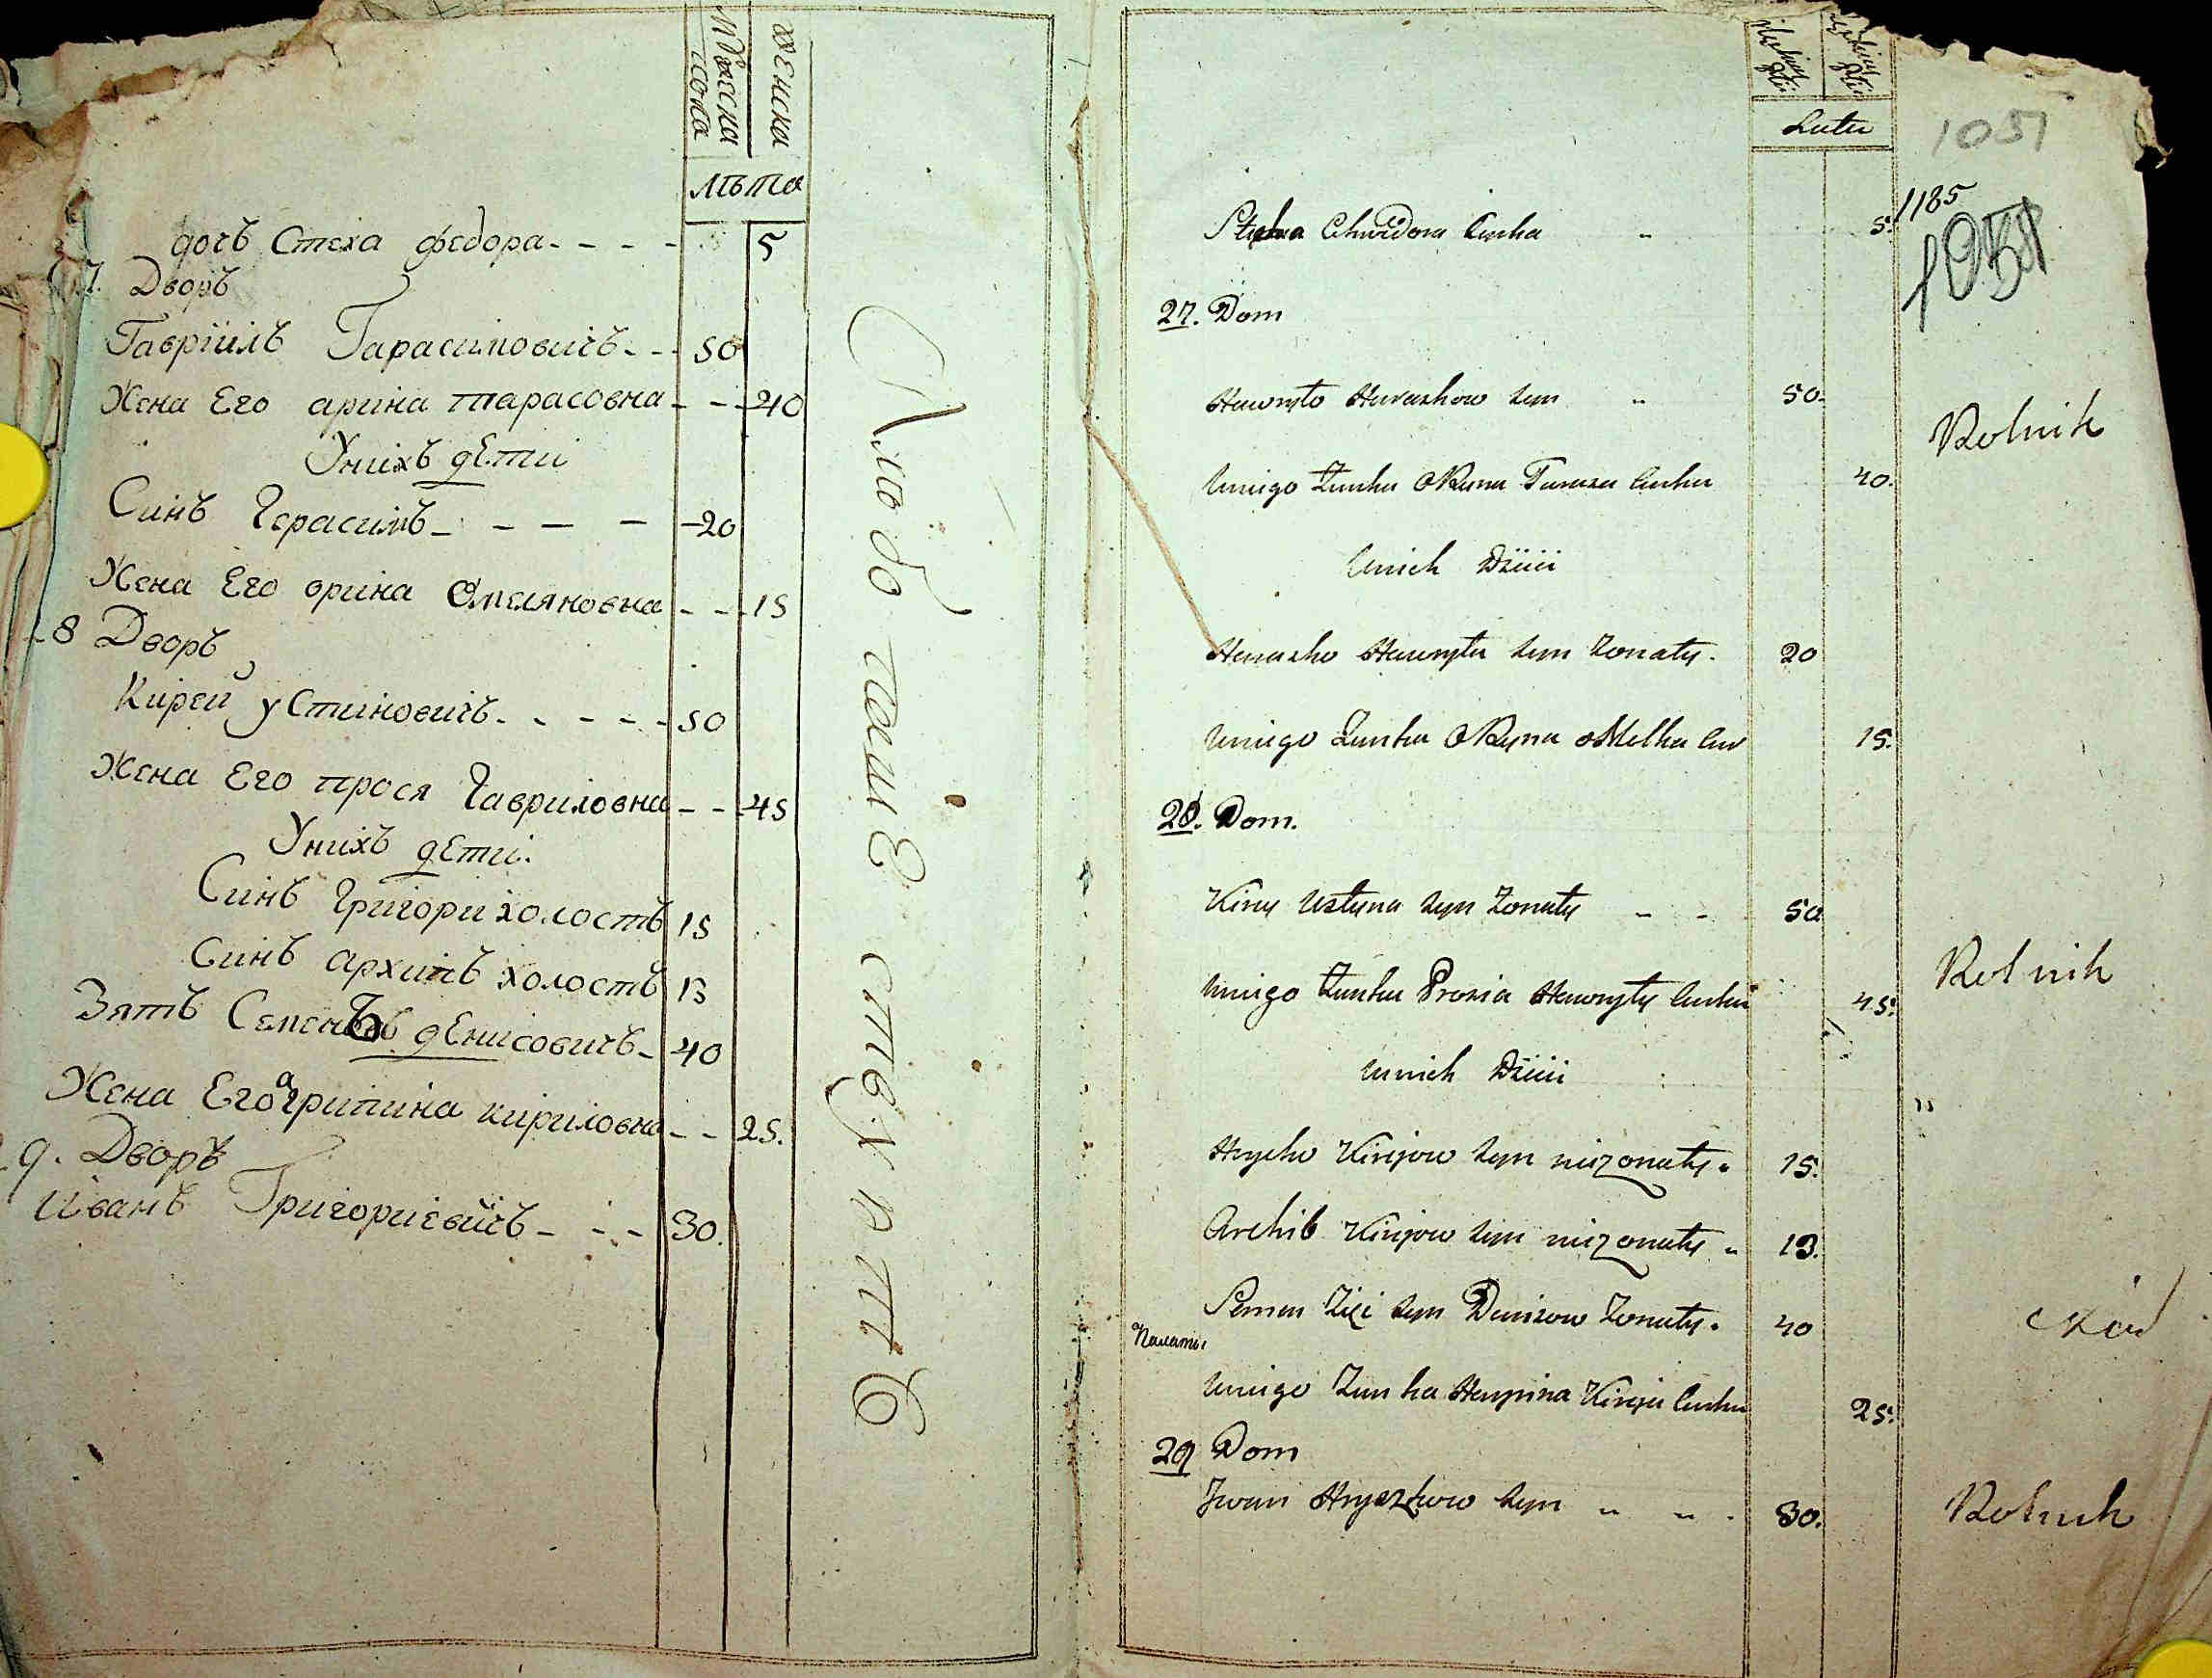 мужеска
пола
женска
лѣта
дочъ Стеха федора - - - - 5
7. Дворъ
Гавріилъ Гарасимовичъ - - 50
Жена Его арина тарасовна - - - 40
Унихъ дѣти
Синъ Герасимъ - - - - 20
Жена Его орина Омеляновна - - - 15
8 Дворъ
Кирей устиновичъ - - - - - 50
Жена Его прося Гавриловна - - - 45
Унихъ дѣти.
Синъ Григори холостъ 15
Синъ архипъ холостъ 13
Зять Семенъ денисовичъ - 40
Жена Его агрипина кириловна - - 25.
9. Дворъ
иванъ Григориевичъ - - - 30.
Latu
1051
1185
Stecha Chwedora Curka " 5.
27. Dom
Hawryło Harashow syn " 50.
Rolnik
Uniego Zunka Oryna Tarasa Curka 40.
Unich Dzieci
Harasko Hawryła syn Zonaty. 20
Uniego Zunka Oryna oMelka Cur 15.
28. Dom.
Kirey Ustyna syn Zonaty - - 50
Rolnik
Uniego Zunka Prosia Hawryły Curka 45.
Unich Dzieci
Hrycko Kiryow syn niezonaty " 15.
Archib Kiryow syn niezonaty " 13.
Semen Zięć syn Denisow Zonaty. 40
Uniego Zunka Hrypina Kireja Curka 25.
29 Dom
Jwan Hryczkow syn " " . 30.
Rolnik